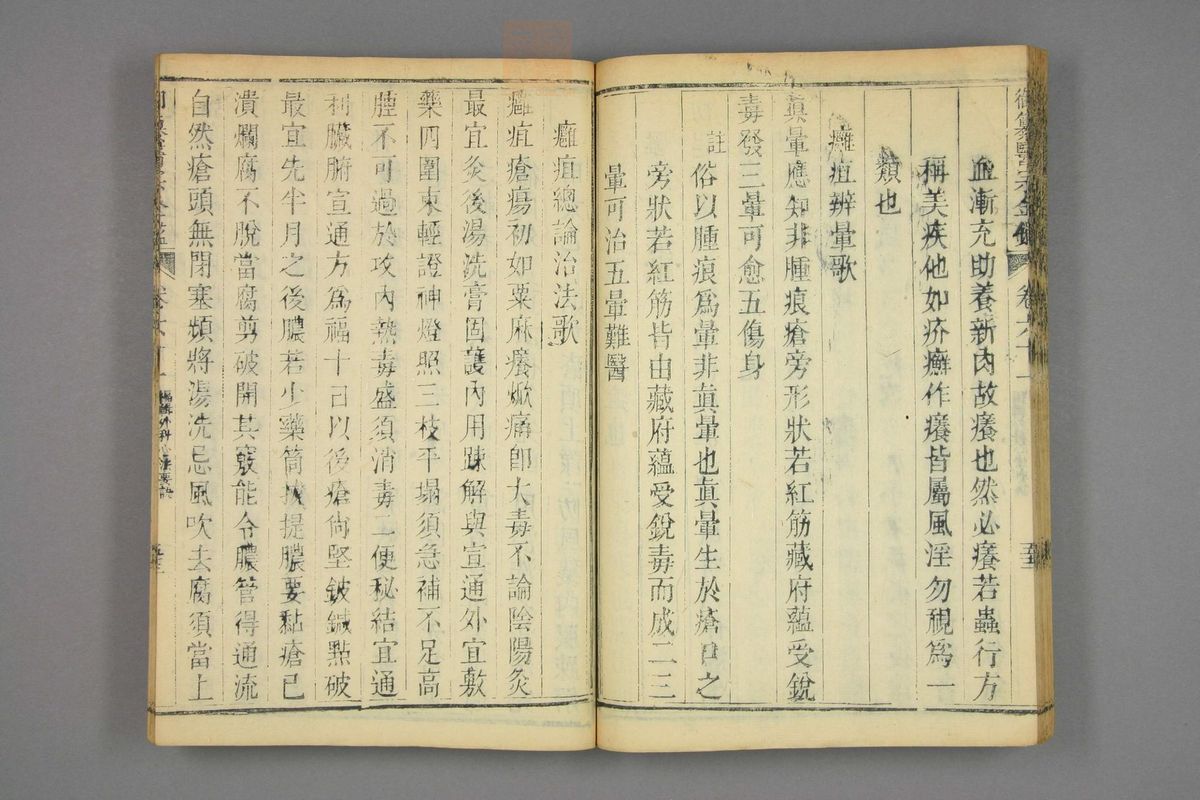 御纂醫宗金鑑 卷六十一
血漸充助養新肉故癢也然必癢若蟲行方
稱美疾他如疥癬作癢皆屬風淫勿視為一
類也
癰疽辨暈歌
眞暈應知非腫痕瘡旁形狀若紅筋藏府蘊受銳
毒發三暈可愈五傷身
註
俗以腫痕爲暈非眞暈也眞暈生於瘡口之
旁狀若紅筋皆由藏府蘊受銳毒而成二三
暈可治五暈難醫
癰疽總論治法歌
癰疽瘡瘍初如粟麻癢焮痛即大毒不論陰陽灸
最宜灸後湯洗膏固護內用疎解與宣通外宜敷
藥四圍束輕證神燈照三枝平塌須急補不足高
腫不可過於攻內熱毒盛須消毒二便秘結宜通
利臟腑宣通方爲福十日以後瘡尙堅鈹鍼點破
最宜先半月之後膿若少藥筒拔提膿要黏瘡已
潰爛腐不脫當腐剪破開其竅能令膿管得通流
自然瘡頭無閉塞頻將湯洗忌風吹去腐須當上
卷六十一 編輯外科心法要訣